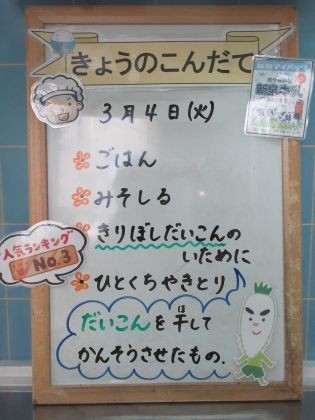 きょうのこんだて
3月4日(火)
ごはん
みそしる
きりぼしだいこんの
いために
ひとくちやきとり♪
人気ランキング
No.3
だいこんを干して
ほ
かんそうさせたもの.